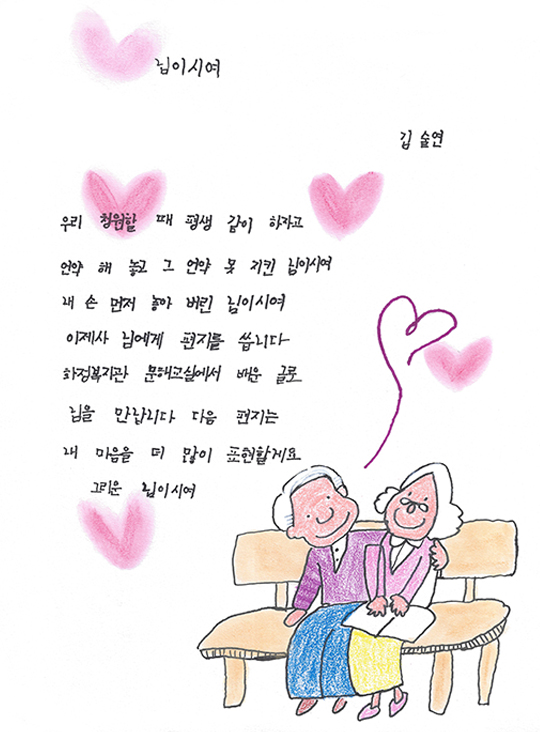 님이시여
김 술연
우리 청원할 때 평생 같이 하자고
언약 해 놓고 그 언약 못 지킨 님이시여
내 손 먼저 놓아 버린 님이시여
이제사 님에게 편지를 씁니다
화정복지관 문해교실에서 배운 글로
님을 만납니다 다음 편지는
내 마음을 더 많이 표현할게요
그리운 님이시여